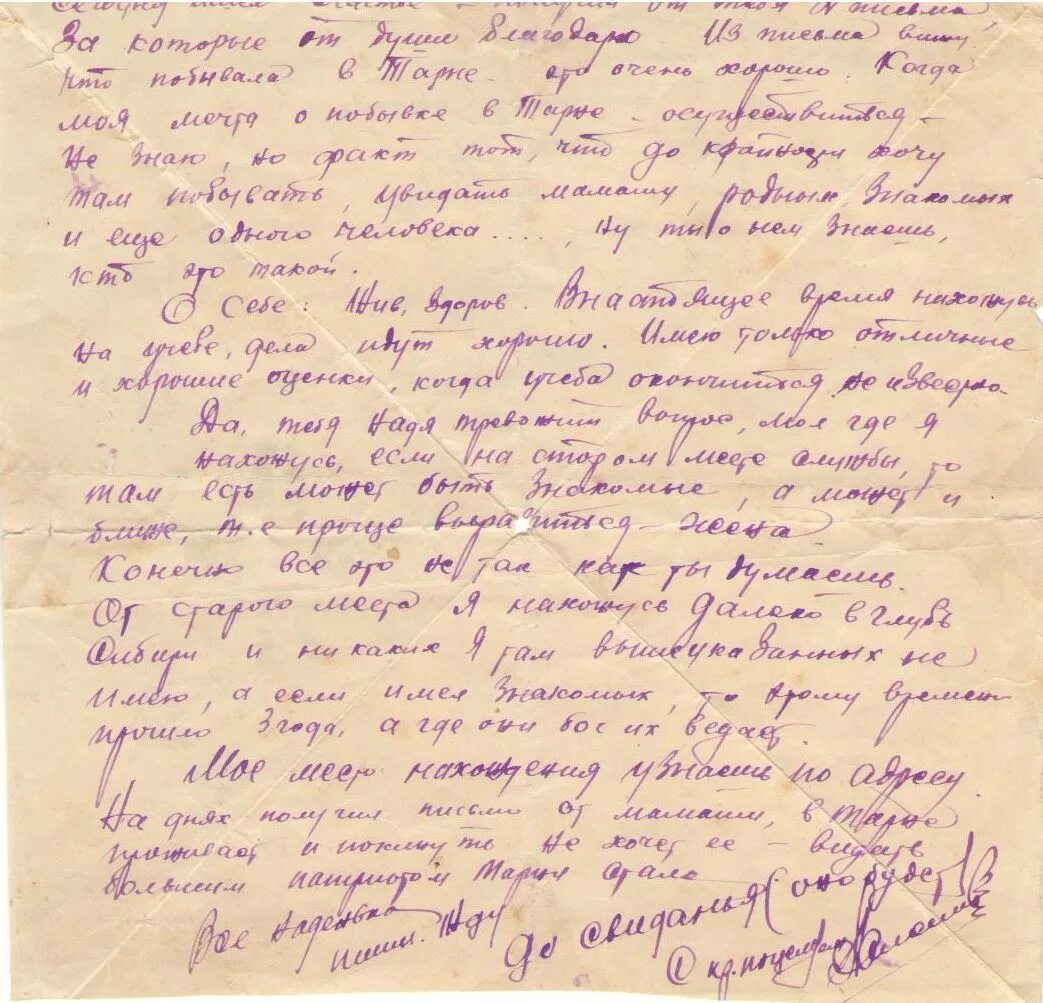 Сегодня меня счастье - получил от тебя письма,
За которые от души благодарю. Из письма вижу
что побывала в Тарже. это очень хорошо. Когда
моя мечта о побывке в Тарже осуществиться -
не знаю, но факт тот, что до крайности хочу
там побывать, увидать мамашу, родных, знакомых
и еще одного человека...., ну ты о нем знаешь,
кто это такой.
О себе: Жив, здоров. В настоящее время нахожусь
на учебе, дела идут хорошо. Имею только отличные
и хорошие оценки, когда учеба окончиться не известно.
Да, тебя Надя тревожит вопрос, мол где я
нахожусь, если на старом месте службы, то
там есть может быть знакомые, а может и
ближе, т.е проще выразиться - жена.
Конечно все это не так как ты думаешь.
От старого места я нахожусь далеко в глубь
Сибири и никаких я там вышеуказанных не
имею, а если имел знакомых, то этому времени
прошло 3 года, а где они бог их ведает.
Мое место нахождения узнаешь по адресу.
На днях получил письмо от мамаши, в Тарже
проживает и покинуть не хочет ее - видать
большим патриотом Таржи стала
Все Наденька
пиши. Жду
До свиданья (оно будет)
С кр. поцелуем